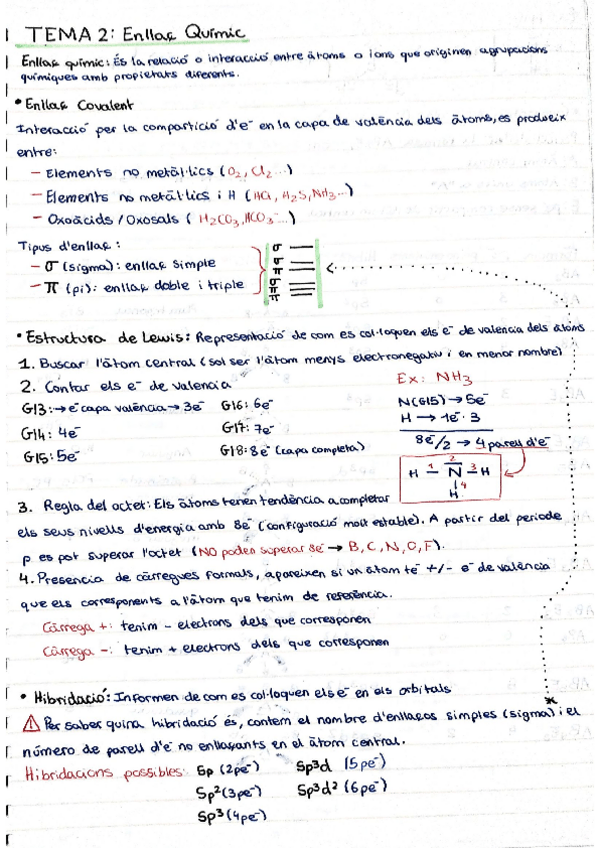 TEMA 2: Enllaç Químic
Enllaç químic: És la relació o interacció entre àtoms o ions que originen agrupacions
químiques amb propietats diferents.
• Enllaç Covalent
Interacció per la compartició d'e⁻ en la capa de valència dels àtoms, es produeix
entre:
– Elements no metàl·lics (O₂, Cl₂...)
– Elements no metàl·lics i H (HCl, H₂S, NH₃...)
– Oxoàcids / Oxosals ( H₂CO₃, HCO₃⁻...)
Tipus d'enllaç:
– σ (sigma): enllaç simple
– π (pi): enllaç doble i triple
σ
π σ
π σ π
• Estructura de Lewis: Representació de com es col·loquen els e⁻ de valencia dels àtoms
1. Buscar l'àtom central (sol ser l'àtom menys electronegatiu i en menor nombre)
2. Contar els e⁻ de valencia
Ex: NH₃
G13: → e⁻ capa valència → 3e⁻
G16: 6e⁻
N(G15) → 5e⁻
G14: 4e⁻
G17: 7e⁻
H → 1e⁻ · 3
G15: 5e⁻
G18: 8e⁻ (capa completa)
8e⁻/2 → 4 parell d'e⁻
H 1 2 N 3 H
4
H
3. Regla del octet: Els àtoms tenen tendència a completar
els seus nivells d'energia amb 8e⁻ (configuració molt estable). A partir del periode
p es pot superar l'octet (NO poden superar 8e⁻ → B, C, N, O, F).
4. Presencia de càrregues formals, apareixen si un àtom té +/- e⁻ de valència
que els corresponents a l'àtom que tenim de referència.
Càrrega +: tenim – electrons dels que corresponen
Càrrega –: tenim + electrons dels que corresponen
• Hibridació: Informen de com es col·loquen els e⁻ en els orbitals
⚠ Per saber quina hibridació és, contem el nombre d'enllaços simples (sigma) i el
número de parell d'e⁻ no enllaçants en el àtom central.
Hibridacions possibles: Sp (2pe⁻) Sp³d (5pe⁻)
Sp² (3pe⁻) Sp³d² (6pe⁻)
Sp³ (4pe⁻)